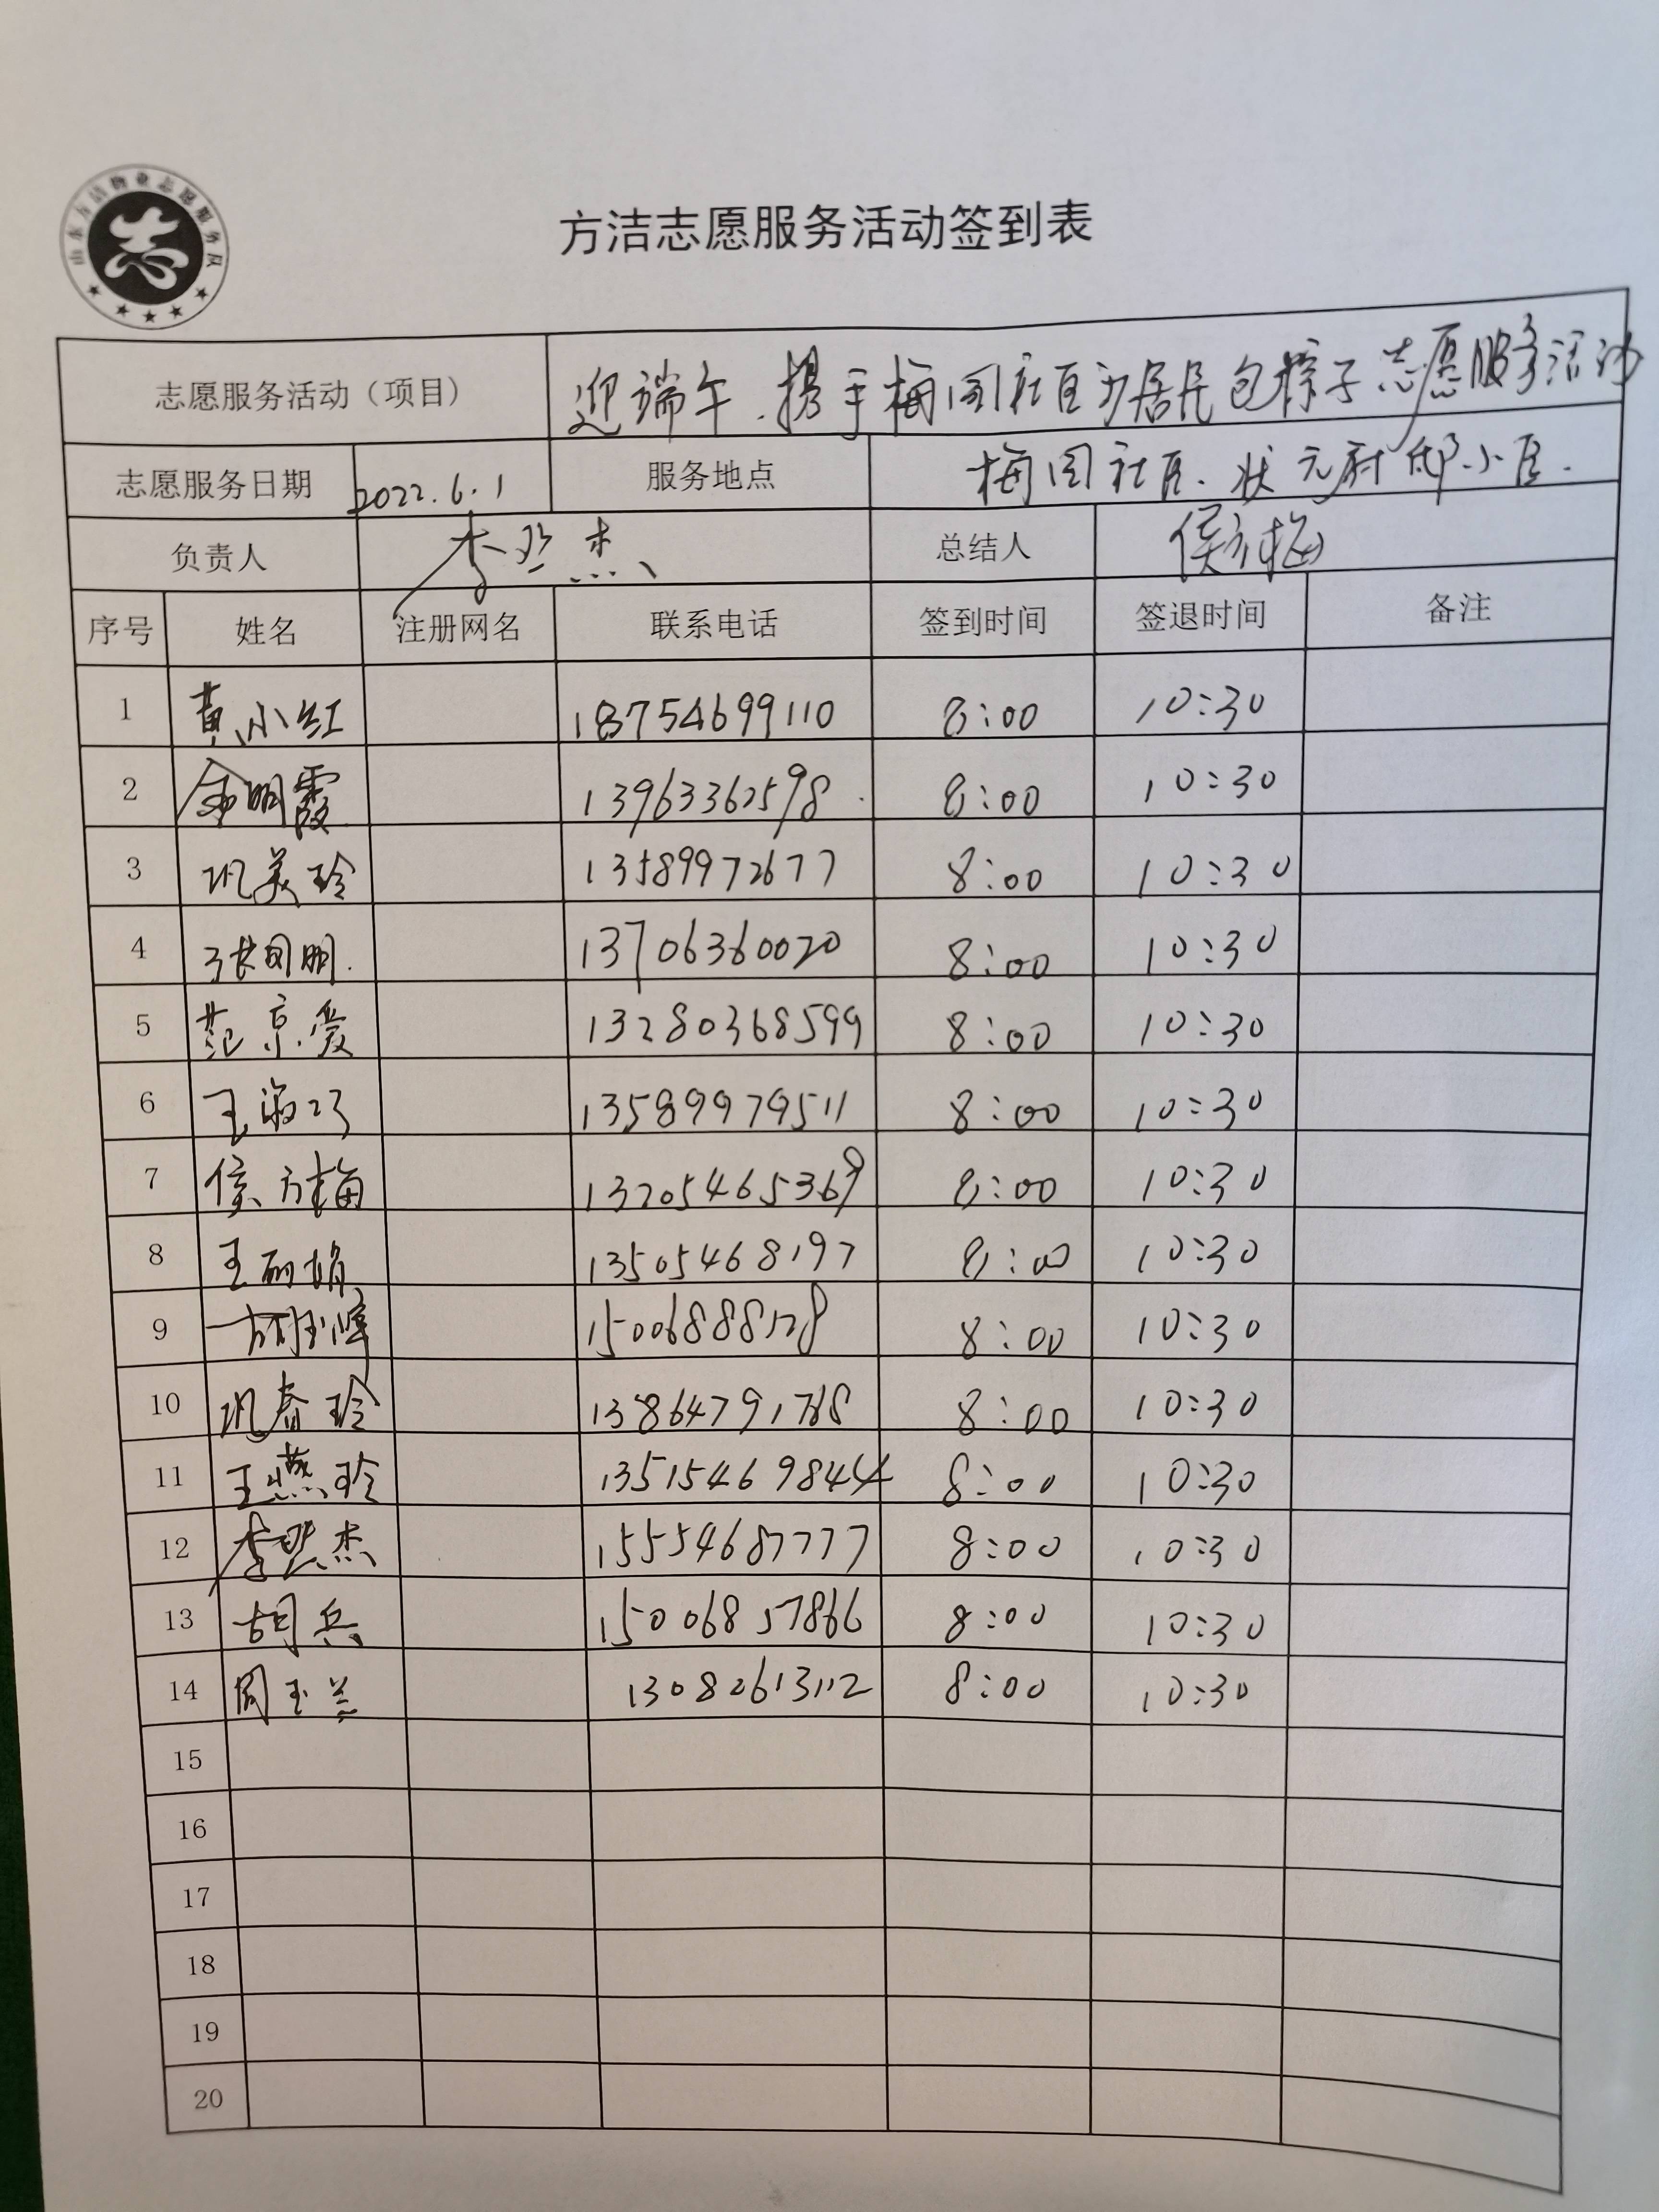 山东方洁物业志愿服务队
志
方洁志愿服务活动签到表
志愿服务活动（项目） 迎端午.携手梅园社区为居民包粽子志愿服务活动
志愿服务日期 2022.6.1 服务地点 梅园社区.状元府邸小区.
负责人 李丛杰 总结人 侯方梅
序号 姓名 注册网名 联系电话 签到时间 签退时间 备注
1 黄小红 18754699110 8:00 10:30
2 明霞 13963362598 8:00 10:30
3 巩美玲 13589972677 8:00 10:30
4 张明. 13706360020 8:00 10:30
5 范京爱 13280368599 8:00 10:30
6 王 13589979511 8:00 10:30
7 侯方梅 13205465369 8:00 10:30
8 王丽娟 13505468197 8:00 10:30
9 15006888528 8:00 10:30
10 巩春玲 13864791768 8:00 10:30
11 王燕玲 13515469844 8:00 10:30
12 李丛杰 15554687777 8:00 10:30
13 胡兵 15006857866 8:00 10:30
14 周玉兰 13082613112 8:00 10:30
15
16
17
18
19
20